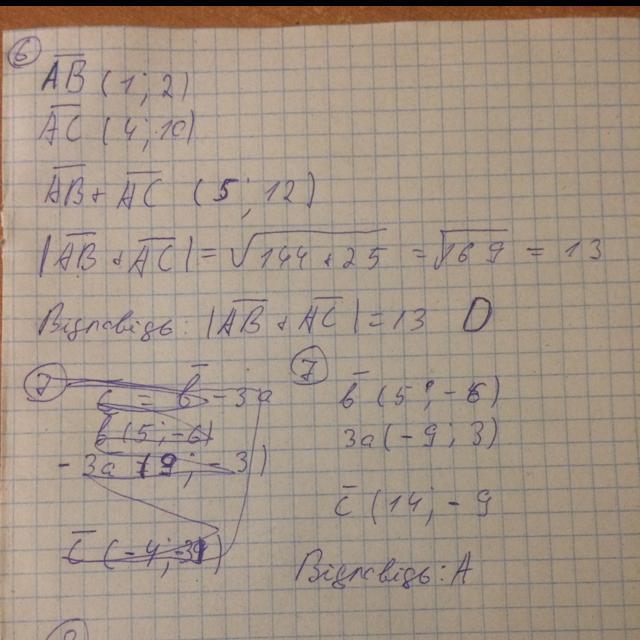 6
AB (1; 2)
AC (4; 10)
AB + AC (5; 12)
|AB + AC| = √144+25 = √169 = 13
Відповідь: |AB + AC| = 13 D
7
c = b - 3a
b (5; -6)
- 3a (9; -3)
c (-4;
7
b (5; -6)
3a (-9; 3)
c (14; -9
Відповідь: A